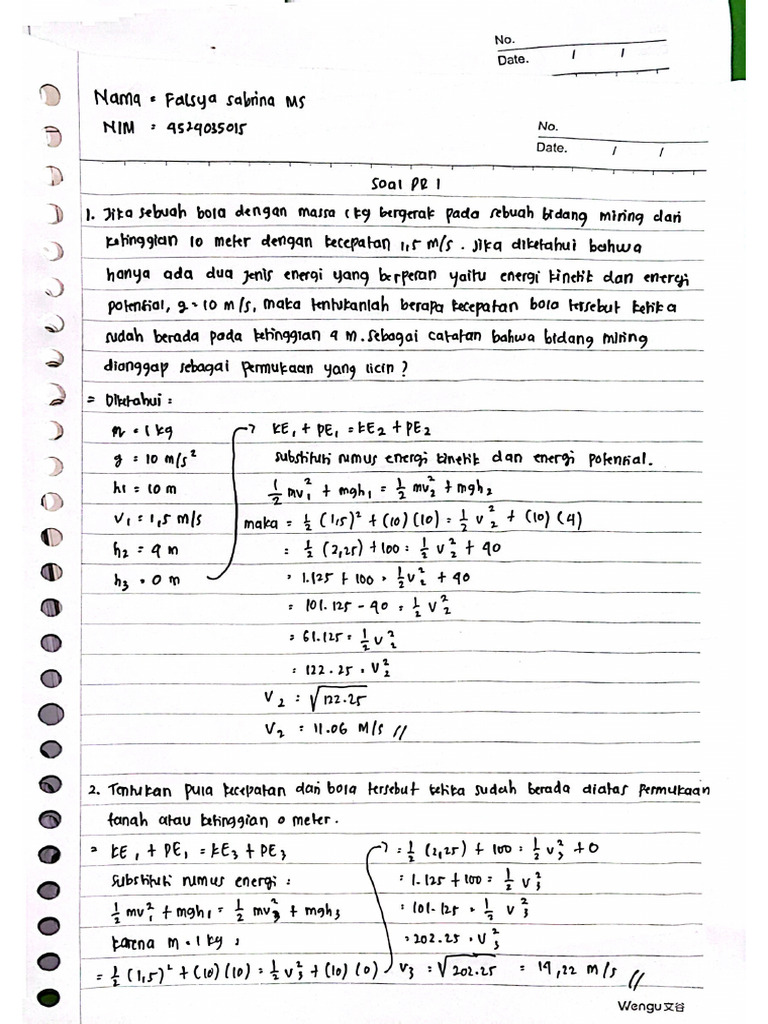 No.
Date. / /
Nama = Falsya Sabrina MS
NIM : 4524035015
No.
Date. / /
Soal PR 1
1. Jika sebuah bola dengan massa 1 kg bergerak pada sebuah bidang miring dari
ketinggian 10 meter dengan kecepatan 1,5 m/s. Jika diketahui bahwa
hanya ada dua jenis energi yang berperan yaitu energi kinetik dan energi
potential, g = 10 m/s, maka tentukanlah berapa kecepatan bola tersebut ketika
sudah berada pada ketinggian 4 m. sebagai catatan bahwa bidang miring
dianggap sebagai permukaan yang licin?
= Diketahui :
m = 1 kg
g = 10 m/s²
h1 = 10 m
V1 = 1,5 m/s
h2 = 4 m
h3 = 0 m
→ KE₁ + PE₁ = KE₂ + PE₂
substituti rumus energi kinetik dan energi potential.
½ mv₁² + mgh₁ = ½ mv₂² + mgh₂
maka = ½ (1,5)² + (10) (10) = ½ v₂² + (10) (4)
= ½ (2,25) + 100 = ½ v₂² + 40
= 1.125 + 100 = ½ v₂² + 40
= 101.125 - 40 = ½ v₂²
= 61.125 = ½ v₂²
= 122.25 = v₂²
V₂ = √122.25
V₂ = 11.06 M/s //
2. Tentukan pula kecepatan dari bola tersebut ketika sudah berada diatas permukaan
tanah atau ketinggian 0 meter.
= KE₁ + PE₁ = KE₃ + PE₃
substituti rumus energi :
½ mv₁² + mgh₁ = ½ mv₃² + mgh₃
karena m = 1 kg ;
= ½ (1,5)² + (10) (10) = ½ v₃² + (10) (0)
→ = ½ (2,25) + 100 = ½ v₃² + 0
= 1.125 + 100 = ½ v₃²
= 101.125 = ½ v₃²
= 202.25 = v₃²
V₃ = √202.25 = 14,22 m/s //
Wengu文谷